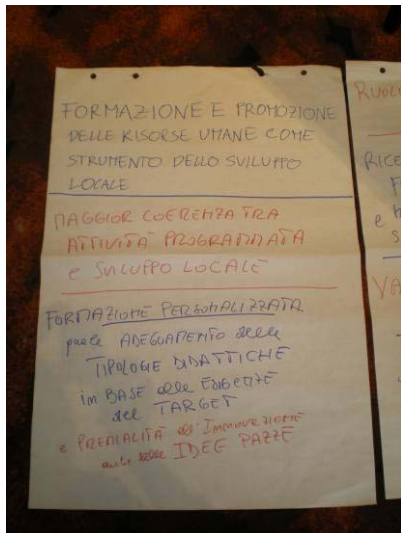 FORMAZIONE E PROMOZIONE
DELLE RISORSE UMANE COME
STRUMENTO DELLO SVILUPPO
LOCALE
MAGGIOR COERENZA TRA
ATTIVITÀ PROGRAMMATA
e SVILUPPO LOCALE
FORMAZIONE PERSONALIZZATA
quale ADEGUAMENTO delle
TIPOLOGIE DIDATTICHE
in BASE alle ESIGENZE
del TARGET
e PREMIALITÀ dell'Innovazione
anche delle IDEE PAZZE
RUOL
RICE
F
e
S
VA